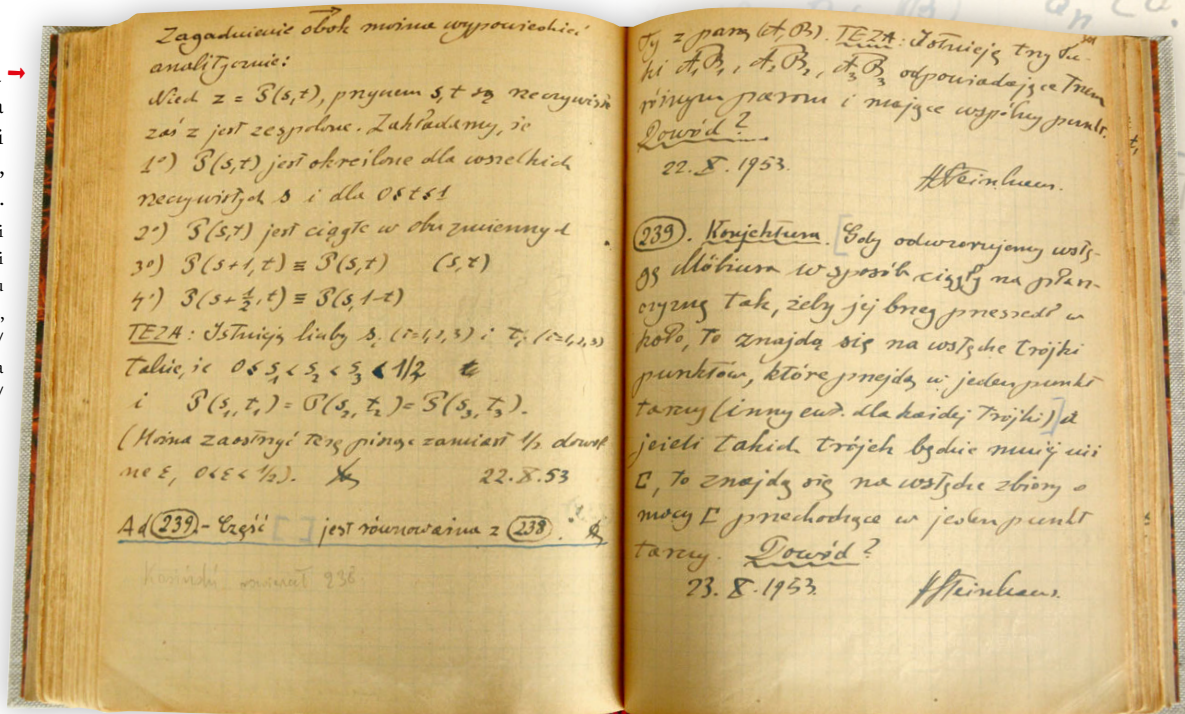 Zagadnienie obok można wypowiedzieć
analitycznie:
Niech z = P(s,t), przyczem s, t są rzeczywiste
zaś z jest zespolone. Zakładamy, że
1°) P(s,t) jest określone dla wszelkich
rzeczywistych s i dla 0≤t≤1
2°) P(s,t) jest ciągłe w obu zmiennych
3°) P(s+1,t) ≡ P(s,t) (s,t)
4°) P(s+½,t) ≡ P(s,1-t)
TEZA: Istnieją liczby s_i (i=1,2,3) i t_i (i=1,2,3)
takie, że 0≤s₁<s₂<s₃<1/2
i P(s₁,t₁) = P(s₂,t₂) = P(s₃,t₃).
(Można zaostrzyć tezę pisząc zamiast ½ dowol
ne ε, 0<ε<½). 22.X.53
Ad (239) - Część [ ] jest równoważna z (238).
238.
ty z parą (A,B). TEZA: Istnieją trzy łu-
ki A₁B₁, A₂B₂, A₃B₃ odpowiadające trzem
różnym parom i mające wspólny punkt.
Dowód?
22.X.1953. HSteinhaus.
(239). Konjektura. [Gdy odwzorujemy wstę-
gę Möbiusa w sposób ciągły na płasz-
czyznę tak, żeby jej brzeg przeszedł w
koło, to znajdą się na wstędze trójki
punktów, które przejdą w jeden punkt
tarczy (inny ew. dla każdej trójki)] a
jeżeli takich trójek będzie mniej niż
C, to znajdą się na wstędze zbiory o
mocy C przechodzące w jeden punkt
tarczy. Dowód?
23.X.1953. HSteinhaus.